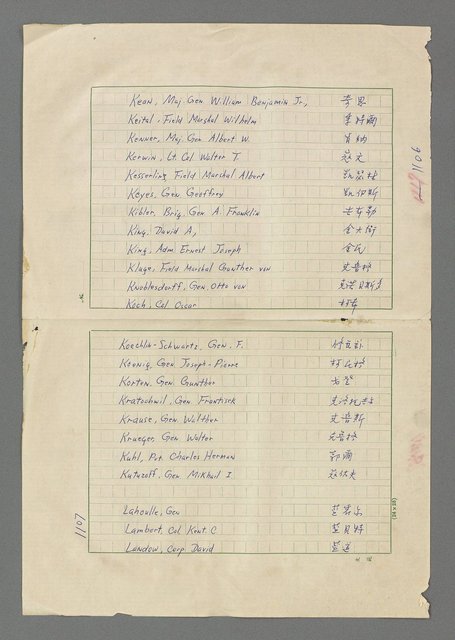 Kean, Maj. Gen William Benjamin Jr, 奇恩
Keital, Field Marsdal Wilhelm
Kenner, Maj. Gen. Albert W. 肯納
Kerwin, Lt. Col Walter T.
Kesserling Field Marshal Albert
Keyes, Gen Geoffrey 凱伊斯
Kibler, Brig, Gen. A. Franklin 吉布勒
King, David A, 金大衛
King, Adm Ernest Joseph 金氏
Kluge, Field Marshal Gunther von 克魯格
Knoblesdorff, Gen, Otto von
Koch, Col. Oscar 柯希
1106
Koechlin-Schwartz, Gen. F.
Koenig, Gen Joseph-Pierre 柯尼格
Korten, Gen Gunther
Kratochwil, Gen Frantisek
Krause, Gen. Walther 克魯斯
Krueger, Gen Walter 克魯格
Kuhl, Pvt. Charles Herman 郭爾
Kutuzoff, Gen Mikhail I.
Lahoulle, Gen
Lambert, Col Kent. C 藍貝特
Landow, Corp David 藍道
1107
(24×25)